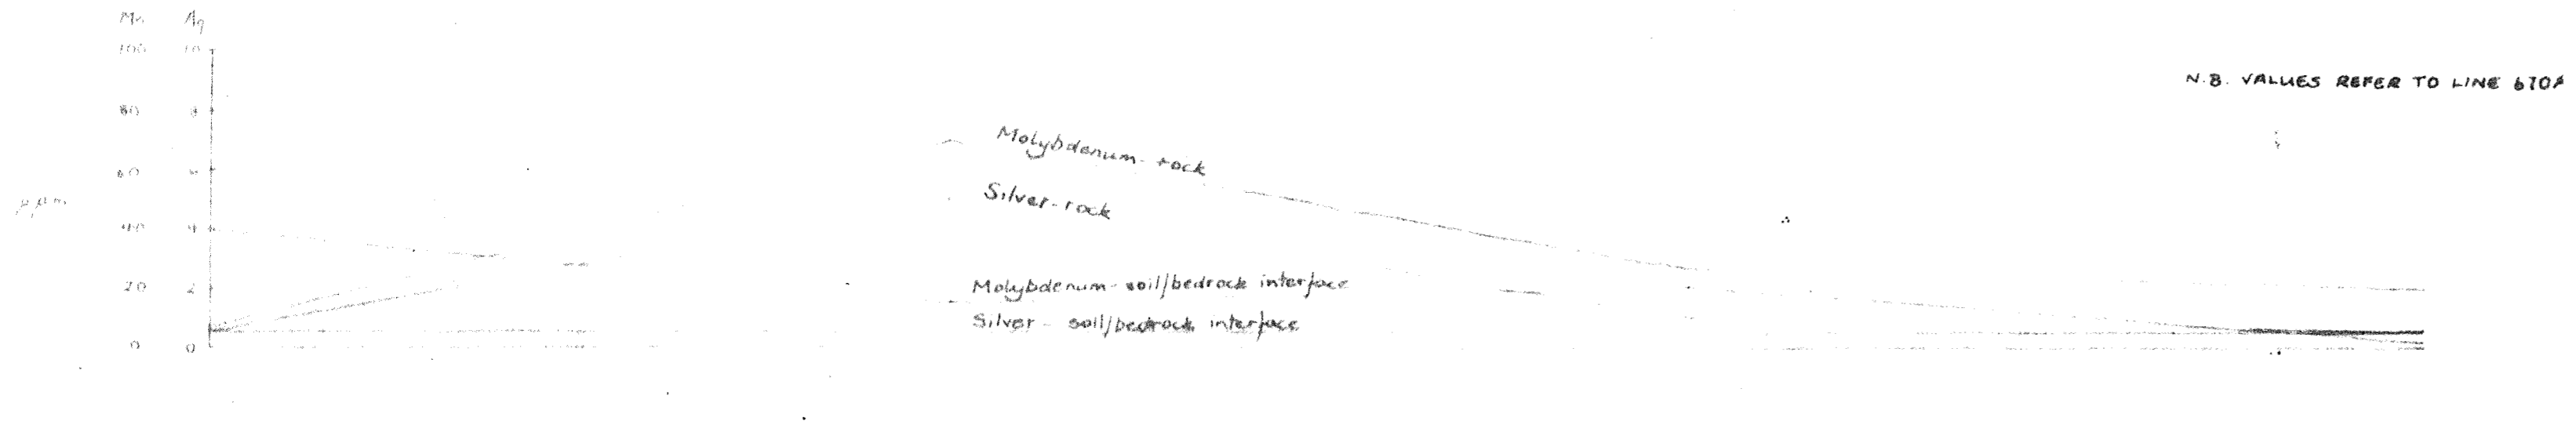 Mo Ag
100 10
80 8
60 6
ppm
40 4
20 2
0 0
N.B. VALUES REFER TO LINE
Molybdenum - rock
Silver - rock
Molybdenum - soil/bedrock interface
Silver - soil/bedrock interface